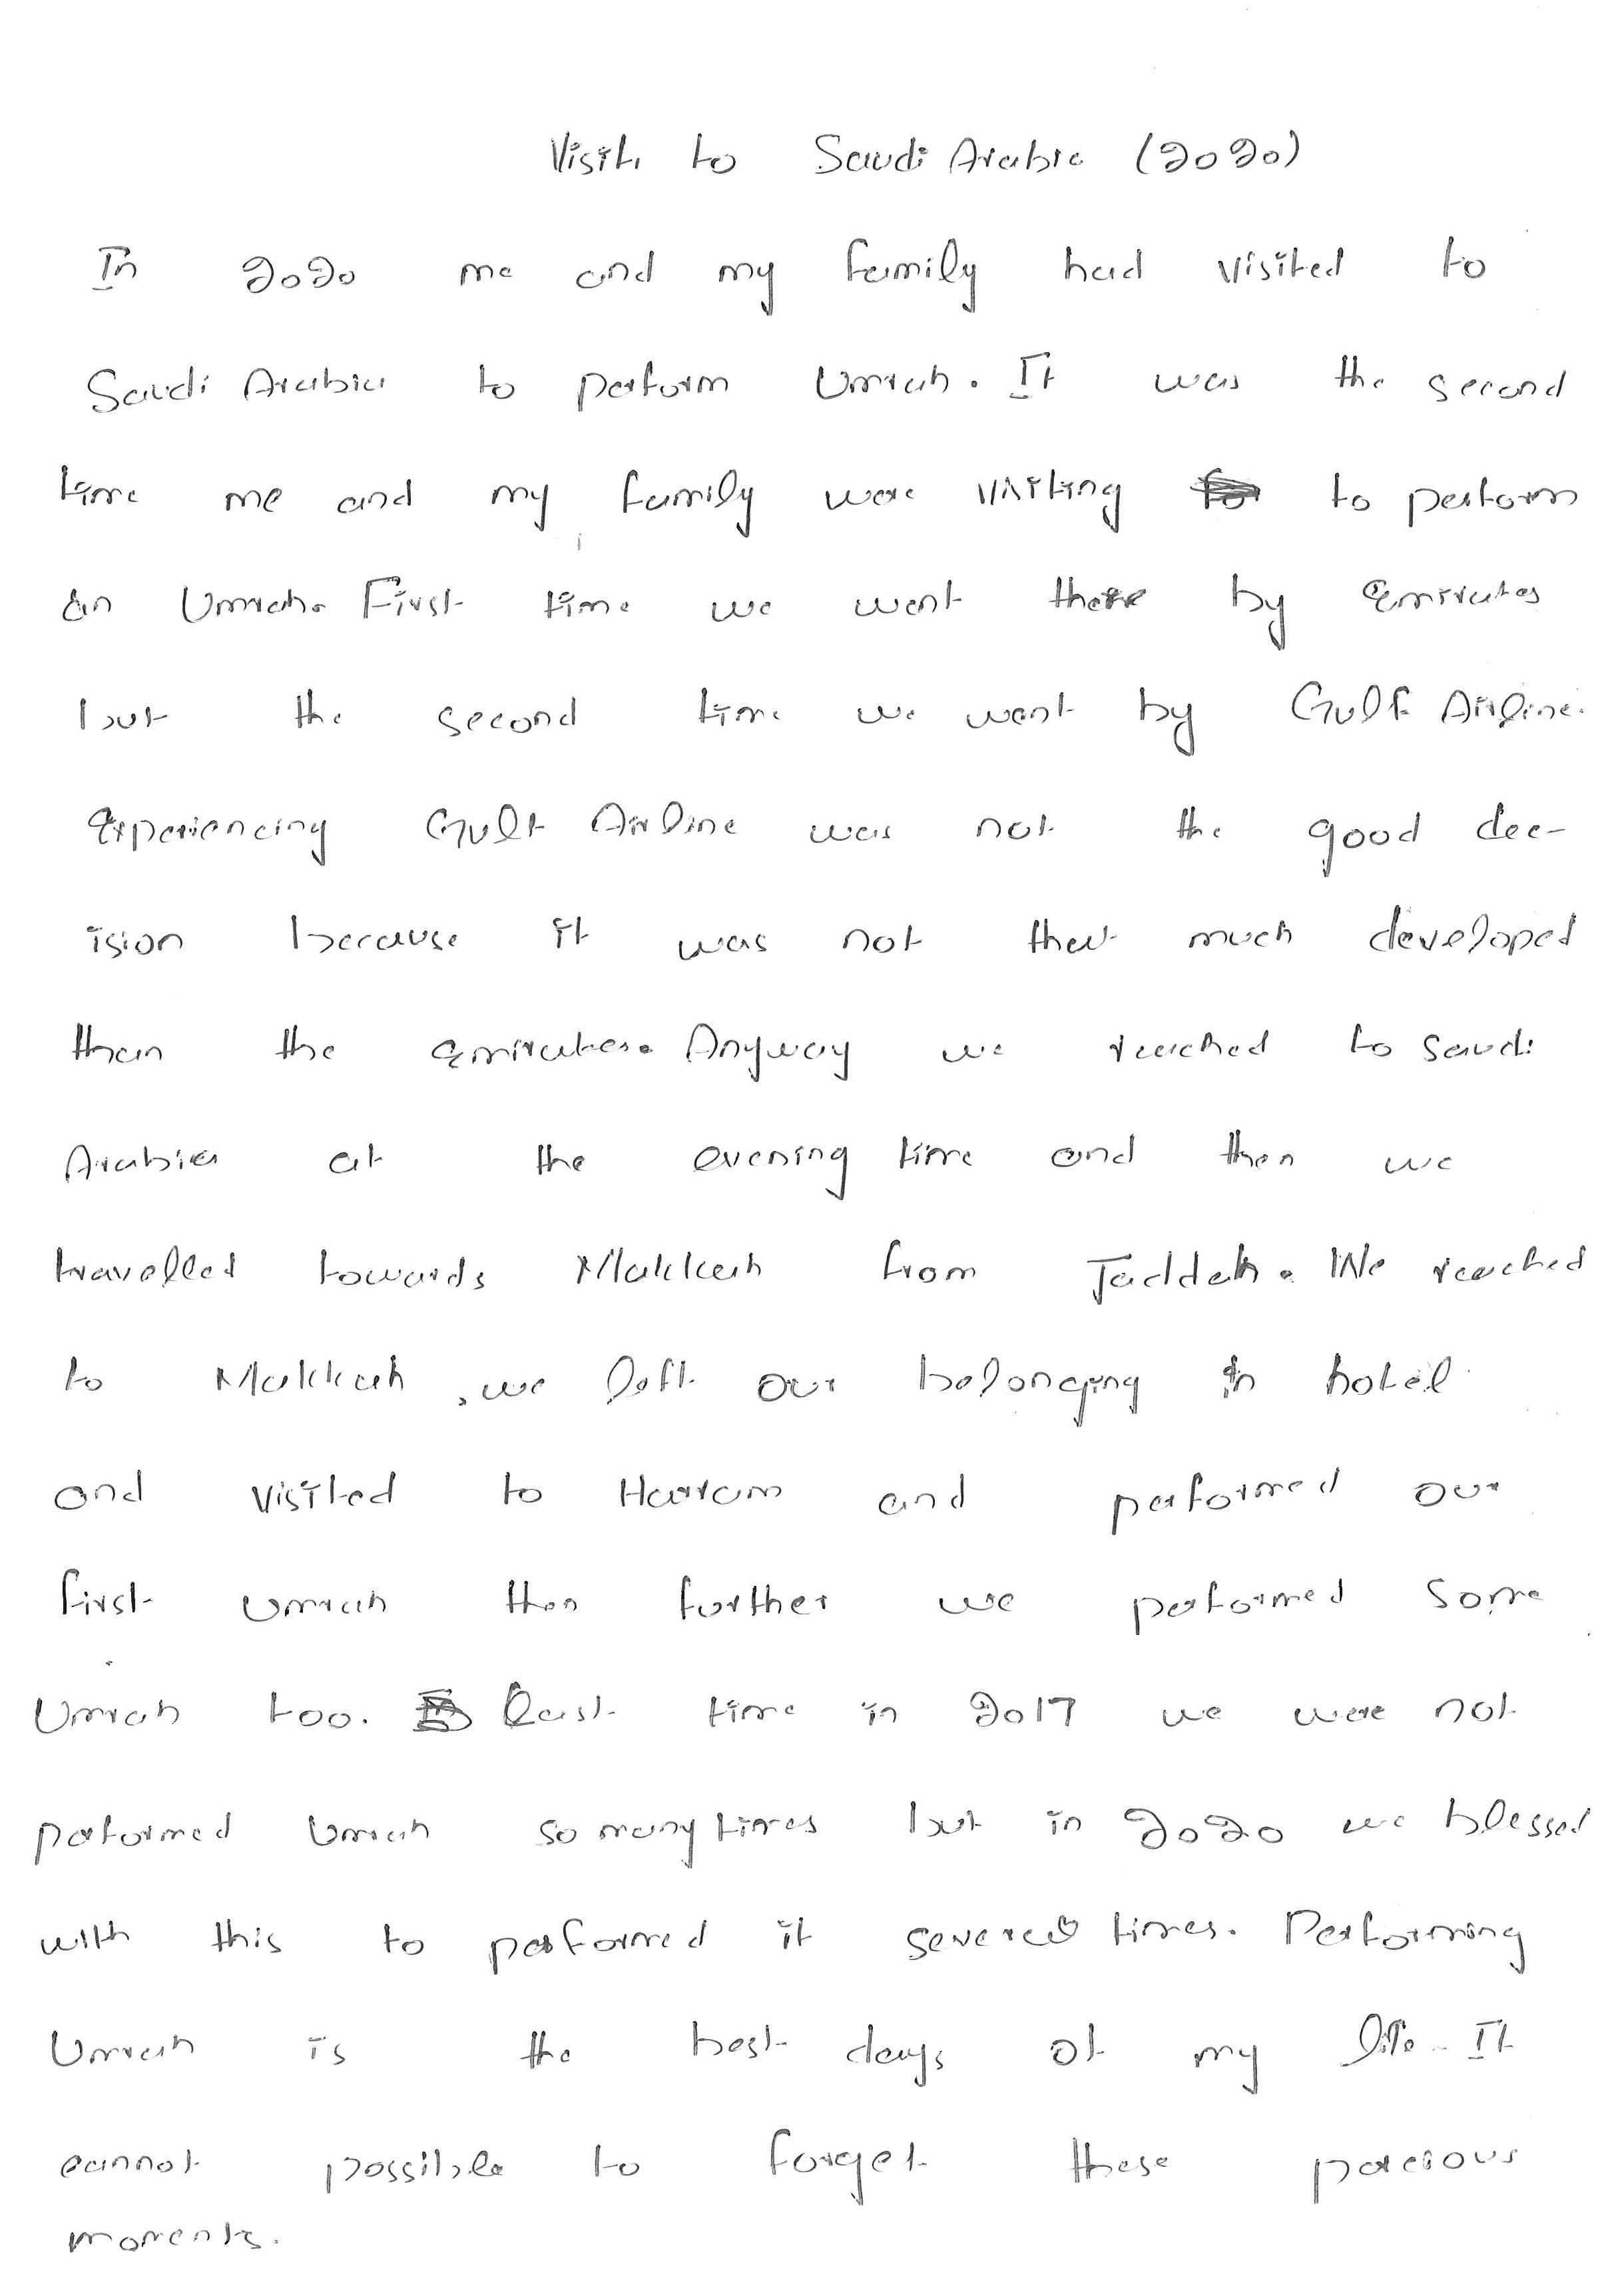 Visit to Saudi Arabia (2020)
In 2020 me and my family had visited to
Saudi Arabia to perform Umrah. It was the second
time me and my family were visiting to perform
an Umrah. First time we went there by Emirates
but the second time we went by Gulf Airline.
Experiencing Gulf Airline was not the good dec-
ision because it was not that much developed
than the Emirates. Anyway we reached to Saudi
Arabia at the evening time and then we
travelled towards Makkah from Jaddah. We reached
to Makkah, we left our belonging in hotel
and visited to Harram and performed our
first Umrah then further we performed some
Umrah too. Last time in 2017 we were not
performed Umrah so many times but in 2020 we blessed
with this to performed it several times. Performing
Umrah is the best days of my life. It
cannot possible to forget these porcious
moments.